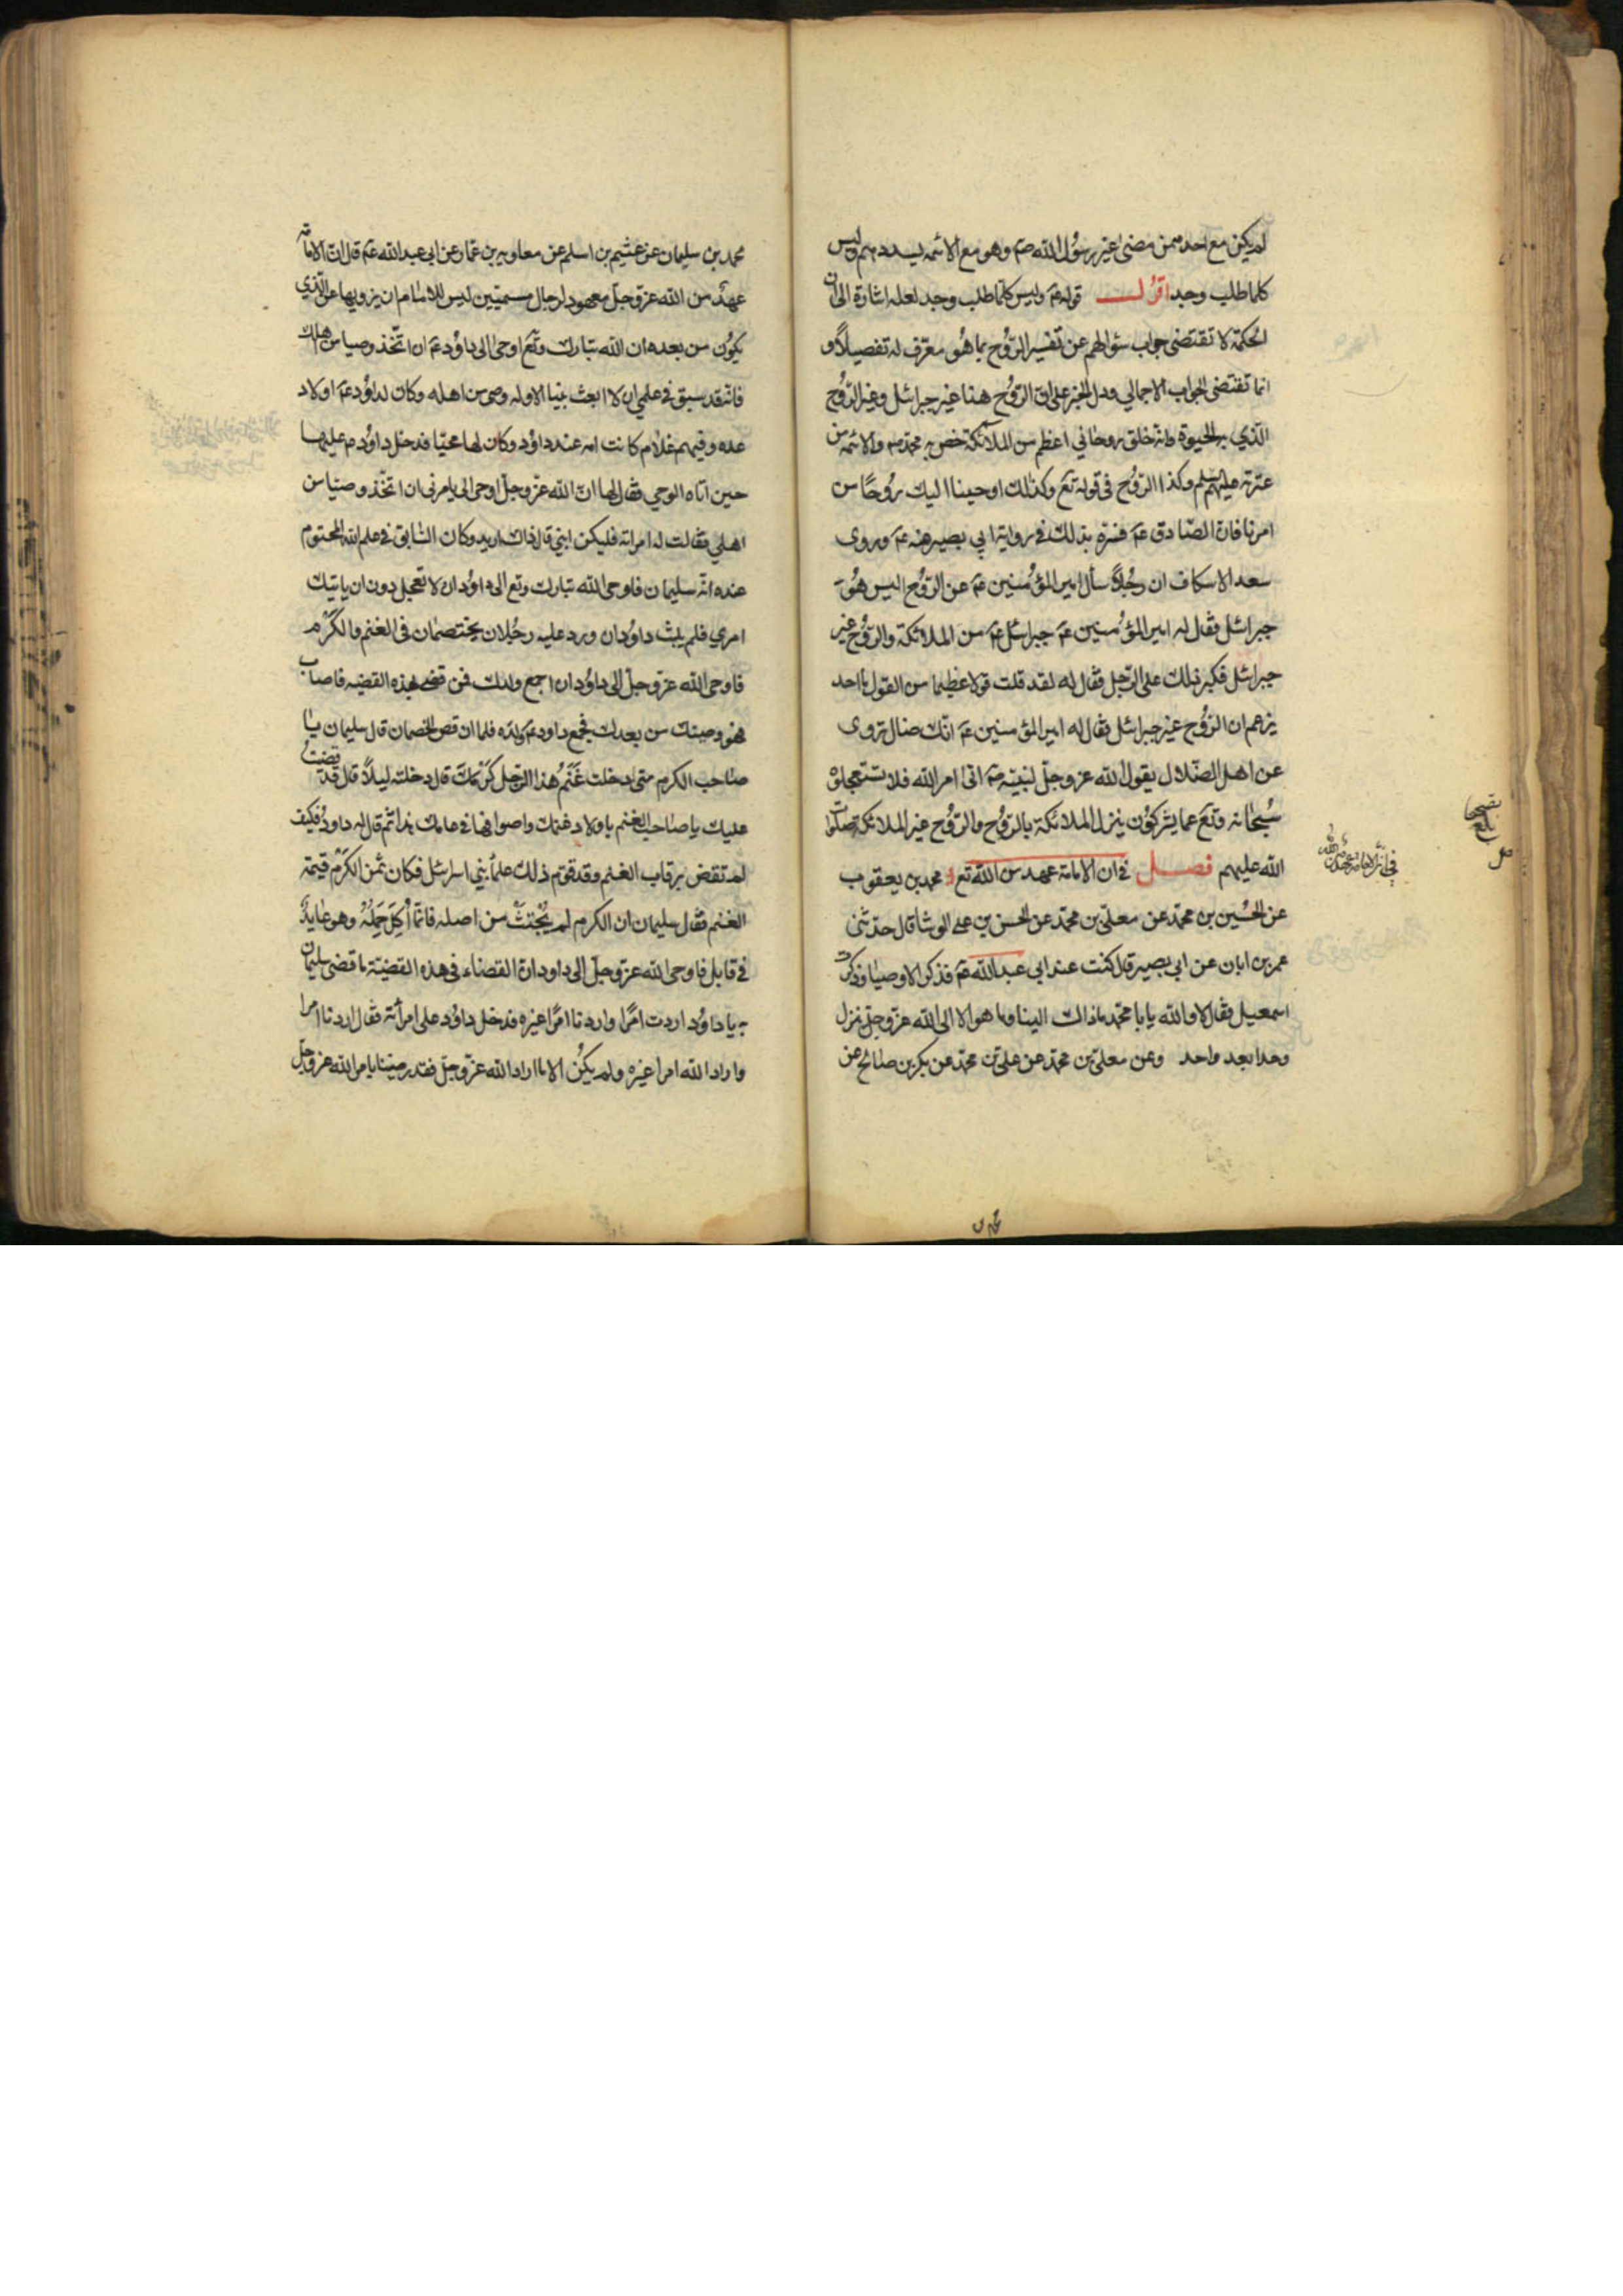 لم يكن مع احد ممن مضى غير رسول الله صم وهو مع الائمه يسددهم وليس
كلما طلب وجد اقول قوله عم وليس كلما طلب وجد لعله اشارة الى ان
الحكمة لا تقتضى جواب سؤالهم عن تفسير الروح بما هو معرّف له تفصيلاً و
انما تقتضى الجواب الاجمالي ودل الخبر على ان الروح هنا غير جبرائل وغير الروح
الذي به الحيوة وانه خلق روحاني اعظم من الملائكة خص به محمد صم والائمه من
عترته عليهم سلم وكذا الروح في قوله تع وكذلك اوحينا اليك روحًا من
امرنا فان الصادق عم فسره بذلك في رواية ابي بصير عنه عم وروى
سعد الاسكاف ان رجُلاً سأل امير المؤمنين عم عن الروح اليس هُو
جبرائل فقال له امير المؤمنين عم جبرائل عم من الملائكة والروح غير
جبرائل فكبر ذلك على الرّجل فقال له لقد قلت قولا عظيما من القول ما احد
يزعم ان الروح غير جبرائل فقال له امير المؤمنين عم انّك ضال تروى
عن اهل الضلال يقول الله عز وجلّ لنبيّه صم اتى امر الله فلا تستعجلوه
سُبحانه وتع عما يشركون ينزل الملائكة بالروح والروح غير الملائكة صلوات
الله عليهم فصل في ان الامامة عهد من الله تع محمد بن يعقوب
عن الحسين بن محمد عن معلى بن محمد عن الحسن بن على الوشا قال حدثنى
عمر بن ابان عن ابي بصير قال كنت عند ابي عبد الله عم فذكر الاوصيا وذكرت
اسمعيل فقال لا والله يا با محمد ما ذاك الينا وما هو الا الى الله عز وجل ينزل
وحدا بعد واحد وعن معلى بن محمد عن على بن محمد عن بكر بن صالح عن
محمد بن سليمان عن عثيم بن اسلم عن معاويه بن عمار عن ابي عبد الله عم قال ان الامامة
عهد من الله عز وجلّ معهود لرجال مسميّين ليس للامام ان يزويها عن الذي
يكون من بعده ان الله تبارك وتع اوحى الى داؤد عم ان اتخذ وصيا من اهلك
فانه قد سبق في علمي ان لا ابعث نبيا الا وله وصى من اهله وكان لداؤد عم اولاد
عده وفيهم غلام كانت امه عند داؤد وكان لها محبّا فدخل داؤد عم عليها
حين اتاه الوحي فقال لها انّ الله عز وجلّ اوحى الى يامرني ان اتخذ وصيّا من
اهلي فقالت له امراته فليكن ابني قال ذاك اريد وكان السّابق في علم الله المحتوم
عنده انه سليمان فاوحى الله تبارك وتع الى داؤد ان لا تعجل دون ان ياتيك
امري فلم يلبث داؤد ان ورد عليه رجُلان يختصمان في الغنم والكرم
فاوحى الله عز وجلّ الى داؤد ان اجمع ولدك فمن قضى بهذه القضيه فاصاب
فهو وصيّك من بعدك فجمع داود عم ولده فلما ان قص الخصمان قال سليمان يا
صاحب الكرم متى دخلت غَنَمُ هذا الرّجل كرمَك قال دخلته ليلاً قال قد قضيتُ
عليك يا صاحب الغنم باولاد غنمك واصوافها في عامك هذا ثم قال له داود فكيف
لم تقض برقاب الغنم وقد قوّم ذلك علماُ بني اسرائل فكان ثمن الكرم قيمة
الغنم فقال سليمان ان الكرم لم يُجْتثّ من اصله فانما أُكِلَ حَمِلُهُ وهو عايد
في قابل فاوحى الله عز وجلّ الى داود ان القضاء في هذه القضيّة ما قضى سليمان
به يا داؤد اردت امرًا واردنا امرًا غيره فدخل داؤد على امرأته فقال اردنا امرا
واراد الله امرا غيره ولم يكن الا ما اراد الله عز وجلّ فقد رضينا بامر الله عز وجل